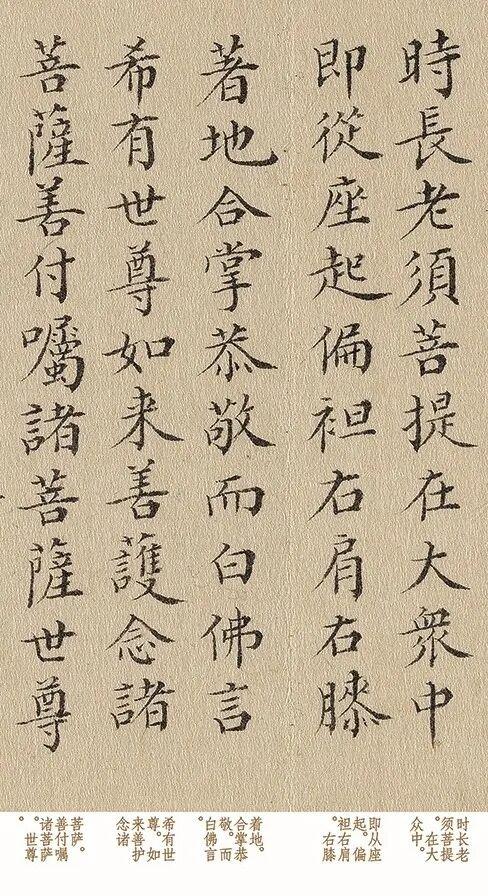 時長老須菩提在大衆中
即從座起偏袒右肩右膝
著地合掌恭敬而白佛言
希有世尊如来善護念諸
菩薩善付囑諸菩薩世尊
时长老
须菩提
。在大
众中。
即从座
起。偏
袒右肩
。右膝
着地。
合掌恭
敬。而
白佛言
希有世
尊。如
来善护
念诸
菩萨。
善付嘱
诸菩萨
。世尊
。